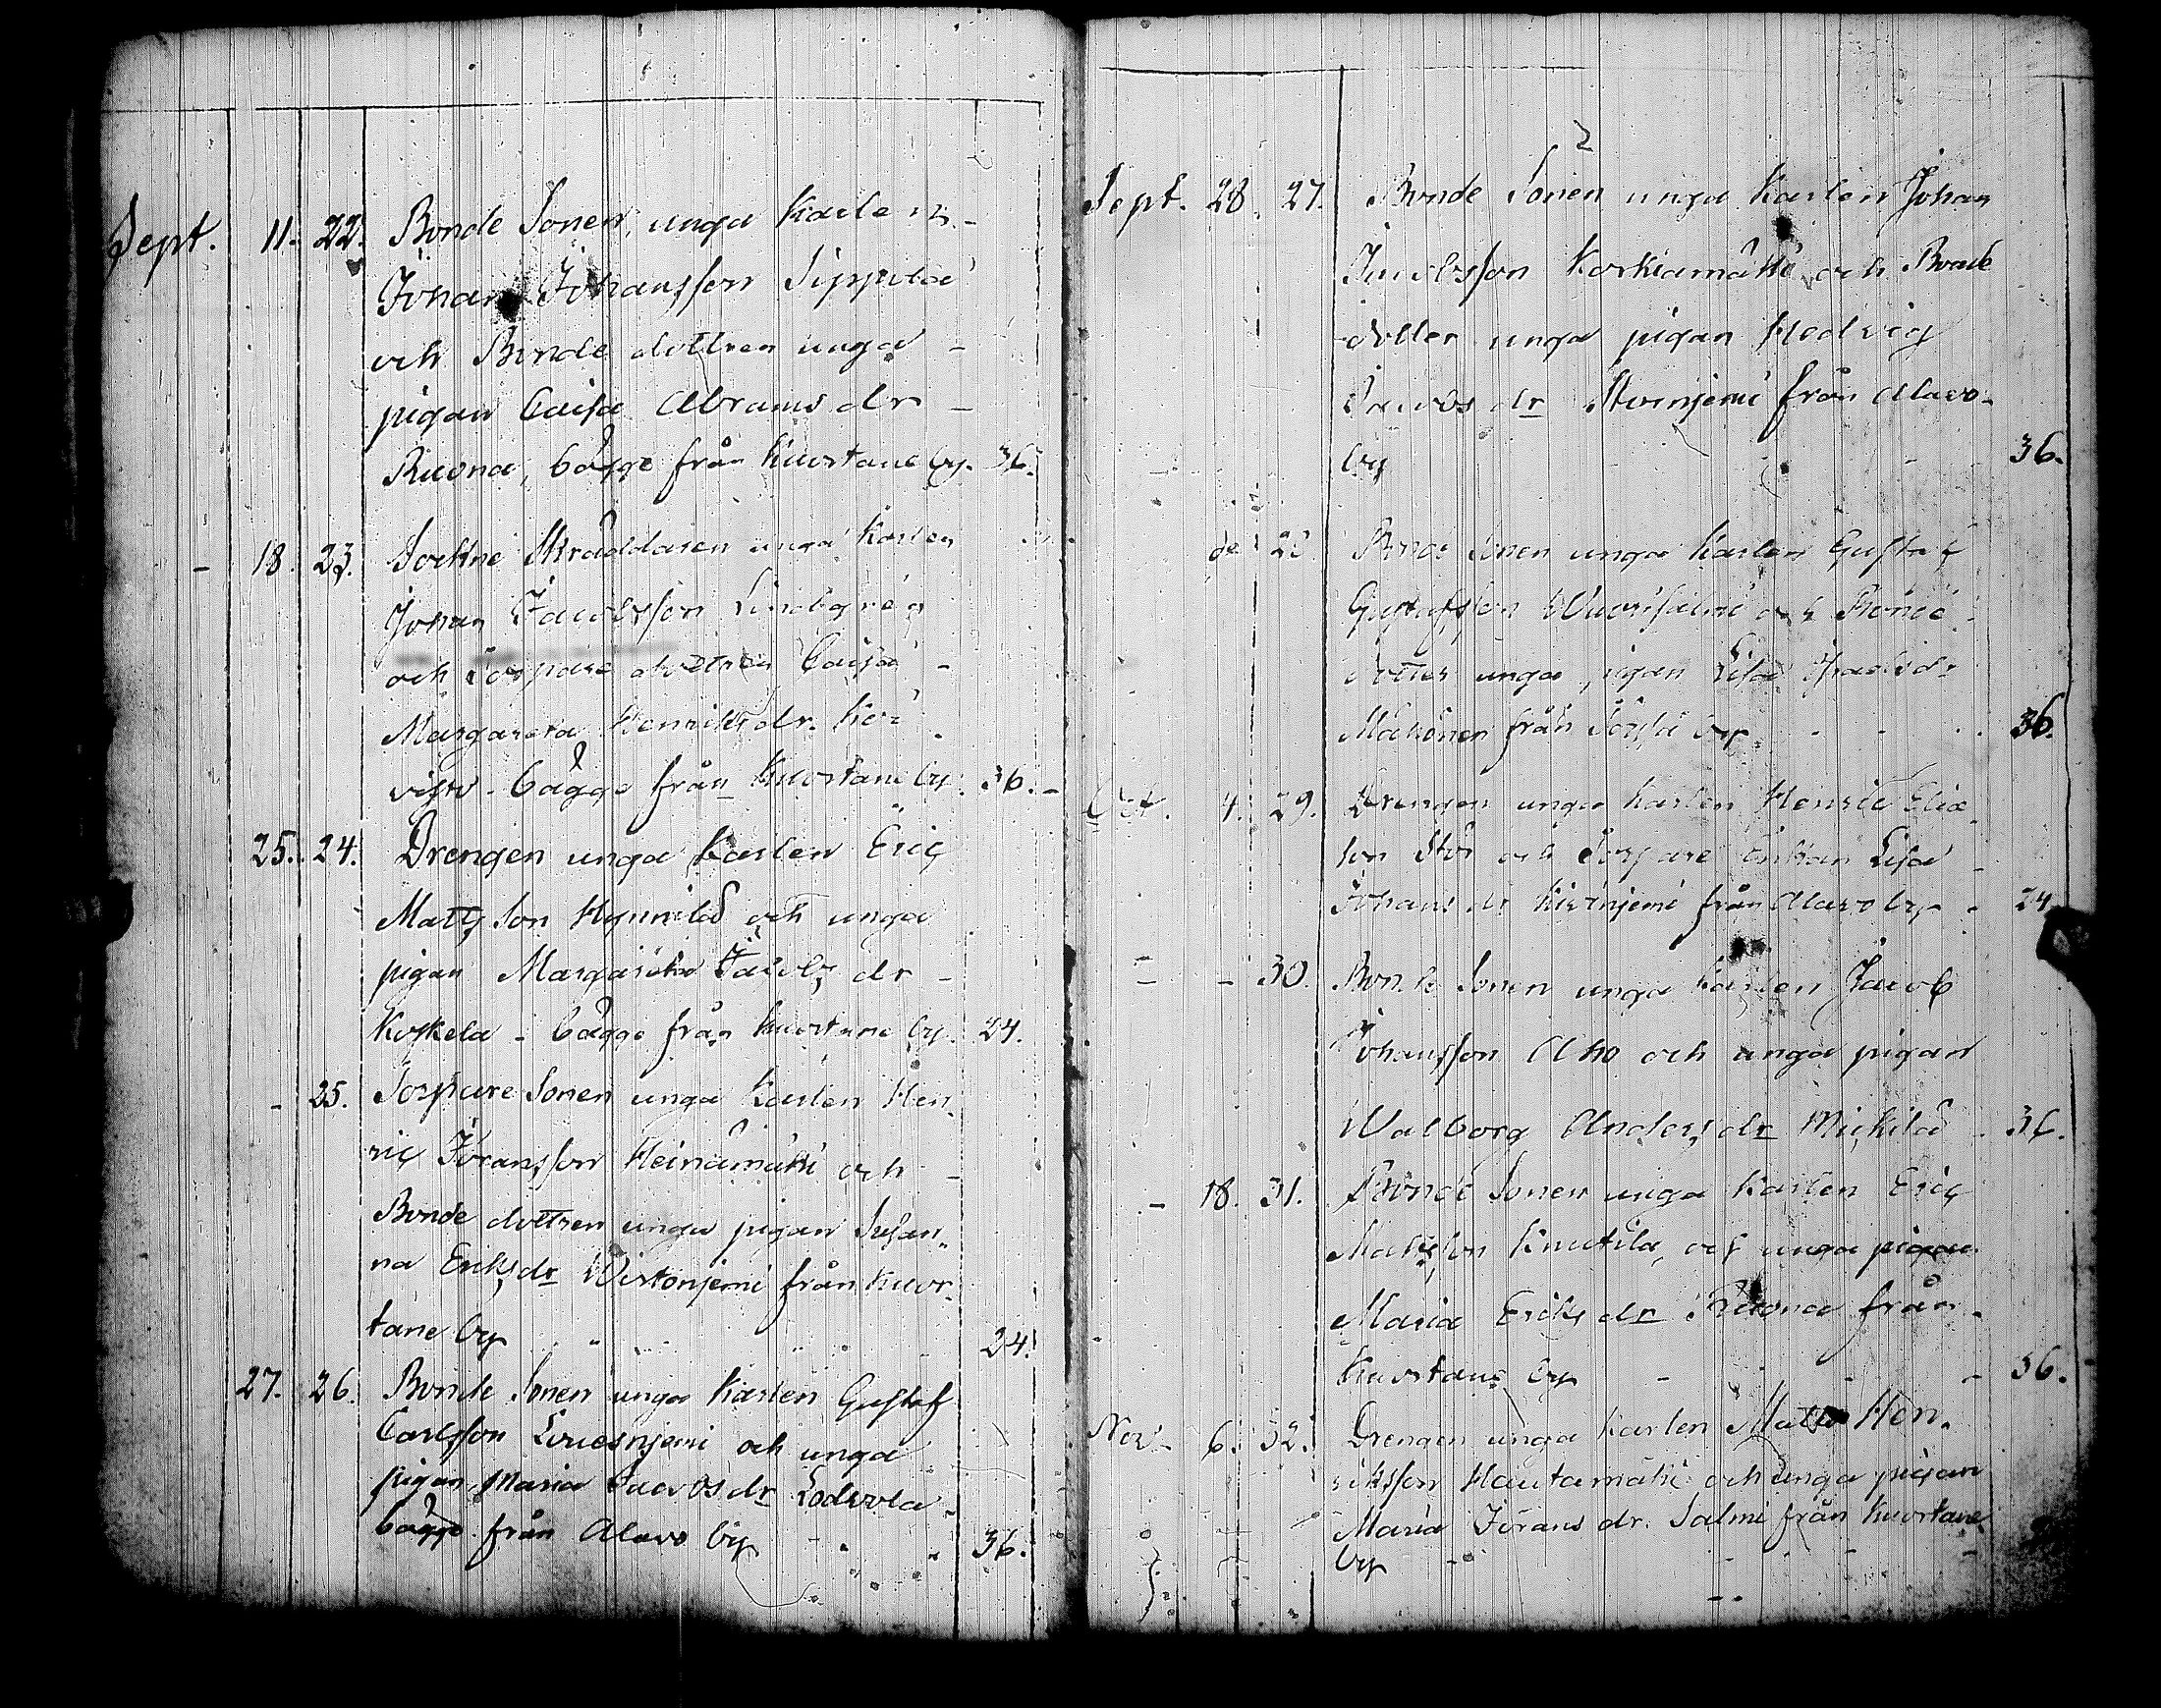 Sept. 11. 22. Bonde Sonen, unga Karlen -
Johan Johansson Sippola
och Bonde dottren unga -
pigan Caisa Abrams dr -
Ruona, bägge från Kuortane by. 36.
- 18. 23. Sockne Skräddaren unga Karlen
Johan Jacobsson Lindgren
och Torpare dottren Caisa -
Margareta Henriks dr. Koi
visto - bägge från Kuortane by. 36. -
25. 24. Drengen unga Karlen Eric
Matts Son Hynnilä och unga
pigan Margareta Jacobs dr -
Koskela - bägge från Kuortane by. 24.
- 25. Torpare Sonen unga Karlen Hen
ric Göransson Heinämäki och -
Bonde dottren unga pigan Susan„
na Eriks dr Wirtonjemi från Kuor„
tane by 24.
27. 26. Bonde Sonen unga Karlen Gustaf
Carlsson Louesnjemi och unga
pigan Maria Jacobs dr
bägge från Alavo by 36.
Sept. 28. 27. Bonde Sonen unga Karlen Johan
Jacobsson Korkiamäki och Bonde
dotter unga pigan Hedvig
Jacobs dr från Alavo-
by 36.
Bonde Sonen unga Karlen Gustaf
Gustafsson och Bonde
dotter unga pigan Lisa
från by 36.
Oct. 4. 29. Drengen unga Karlen Henric Elia
son och Torpare Enkan Lisa
Johans dr från Alavo by - 24
- - 30. Bonde Sonen unga Karlen Jacob
Johansson Aho och unga pigan
Walborg Anders dr Mickilä - 36.
- 18. 31. Bonde Sonen unga Karlen Eric
Mattsson Knutila och unga pigan
Maria Eriks dr Ruona från
Kuortane by - - - 36.
Nov. 6. 32. Drengen unga Karlen Matts Hen„
riksson Hautamäki och unga pigan
Maria Görans dr. Salmi från Kuortane
by -